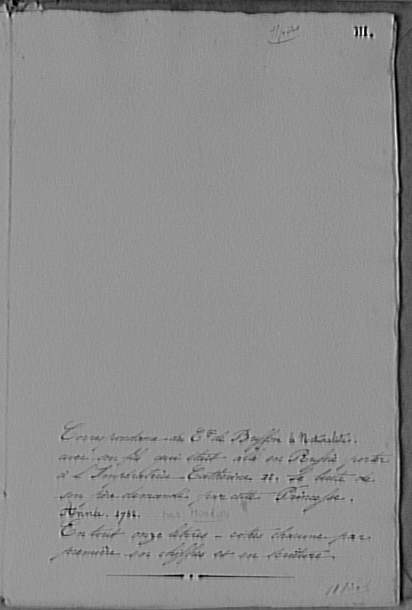 III.
Correspondance de Cte de Buffon le Naturaliste.
avec son fils qui etait allé en Russie porter
à L'Impératrice Catherine II. le buste de
son père demandé par cette Princesse.
Année. 1782.
En tout onze lettres - cotées chacune par
première en chiffres et en